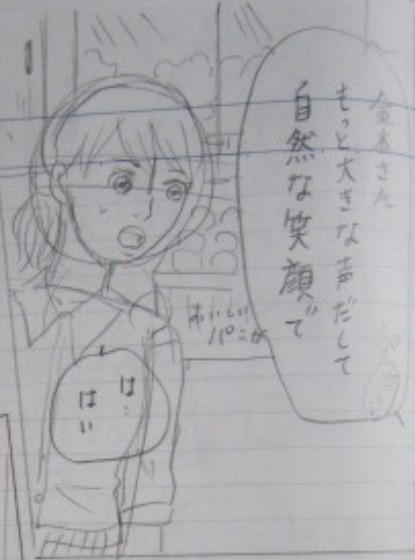 金本さん
もっと大きな声だして
自然な笑顔で
おいしい
は…
はい